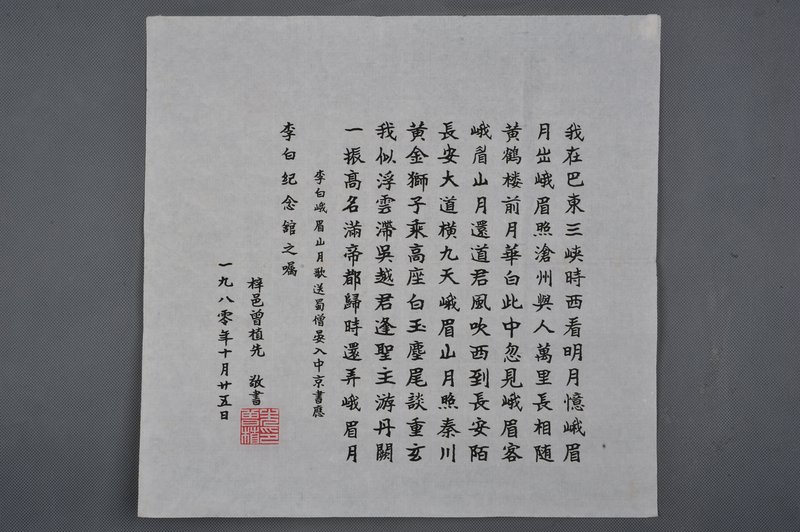 我在巴東三峽時西看明月憶峨眉
月出峨眉照滄州與人萬里長相随
黄鶴楼前月華白此中忽見峨眉客
峨眉山月還道君風吹西到長安陌
長安大道横九天峨眉山月照秦川
黄金獅子乘高座白玉麈尾談重玄
我似浮雲滯吳越君逢聖主游丹闕
一振高名滿帝都歸時還弄峨眉月
李白峨眉山月歌送蜀僧晏入中京書應
李白纪念舘之囑
梓邑曾植先 敬書
一九八零年十月廿五日